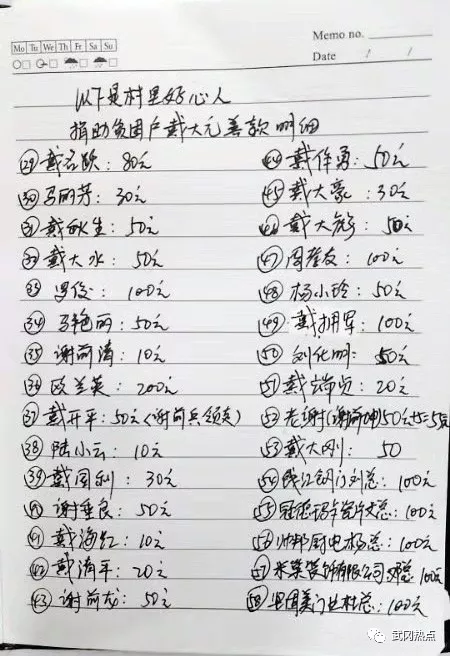 Mo Tu We Th Fr Sa Su
Memo no.
Date / /
以下是村里好心人
捐助贫困户戴大元善款明细
㉙戴名跃：80元
㉚马丽芳：30元
㉛戴秋生：50元
㉜戴大水：50元
㉝罗俊：100元
㉞马艳丽：50元
㉟谢前清：10元
㊱欧兰英：200元
㊲戴开平：50元（谢前兵领交）
㊳陆小云：10元
㊴戴国利：30元
㊵谢垂良：50元
㊶戴海红：10元
㊷戴清平：20元
㊸谢前龙：50元
㊹戴作勇：50元
㊺戴大豪：30元
㊻戴大彪：50元
㊼周登友：100元
㊽杨小玲：50元
㊾戴拥军：100元
㊿刘化明：50元
51戴端贞：20元
52老谢（谢前坤）50元+5=55元
53戴大刚：50
54钱江钢门刘总：100元
55冠德瓷片文总：100元
56帅邦厨电杨总：100元
57装饰有限公司邓总100元
58坚固美门业杜总：100元
武冈热点